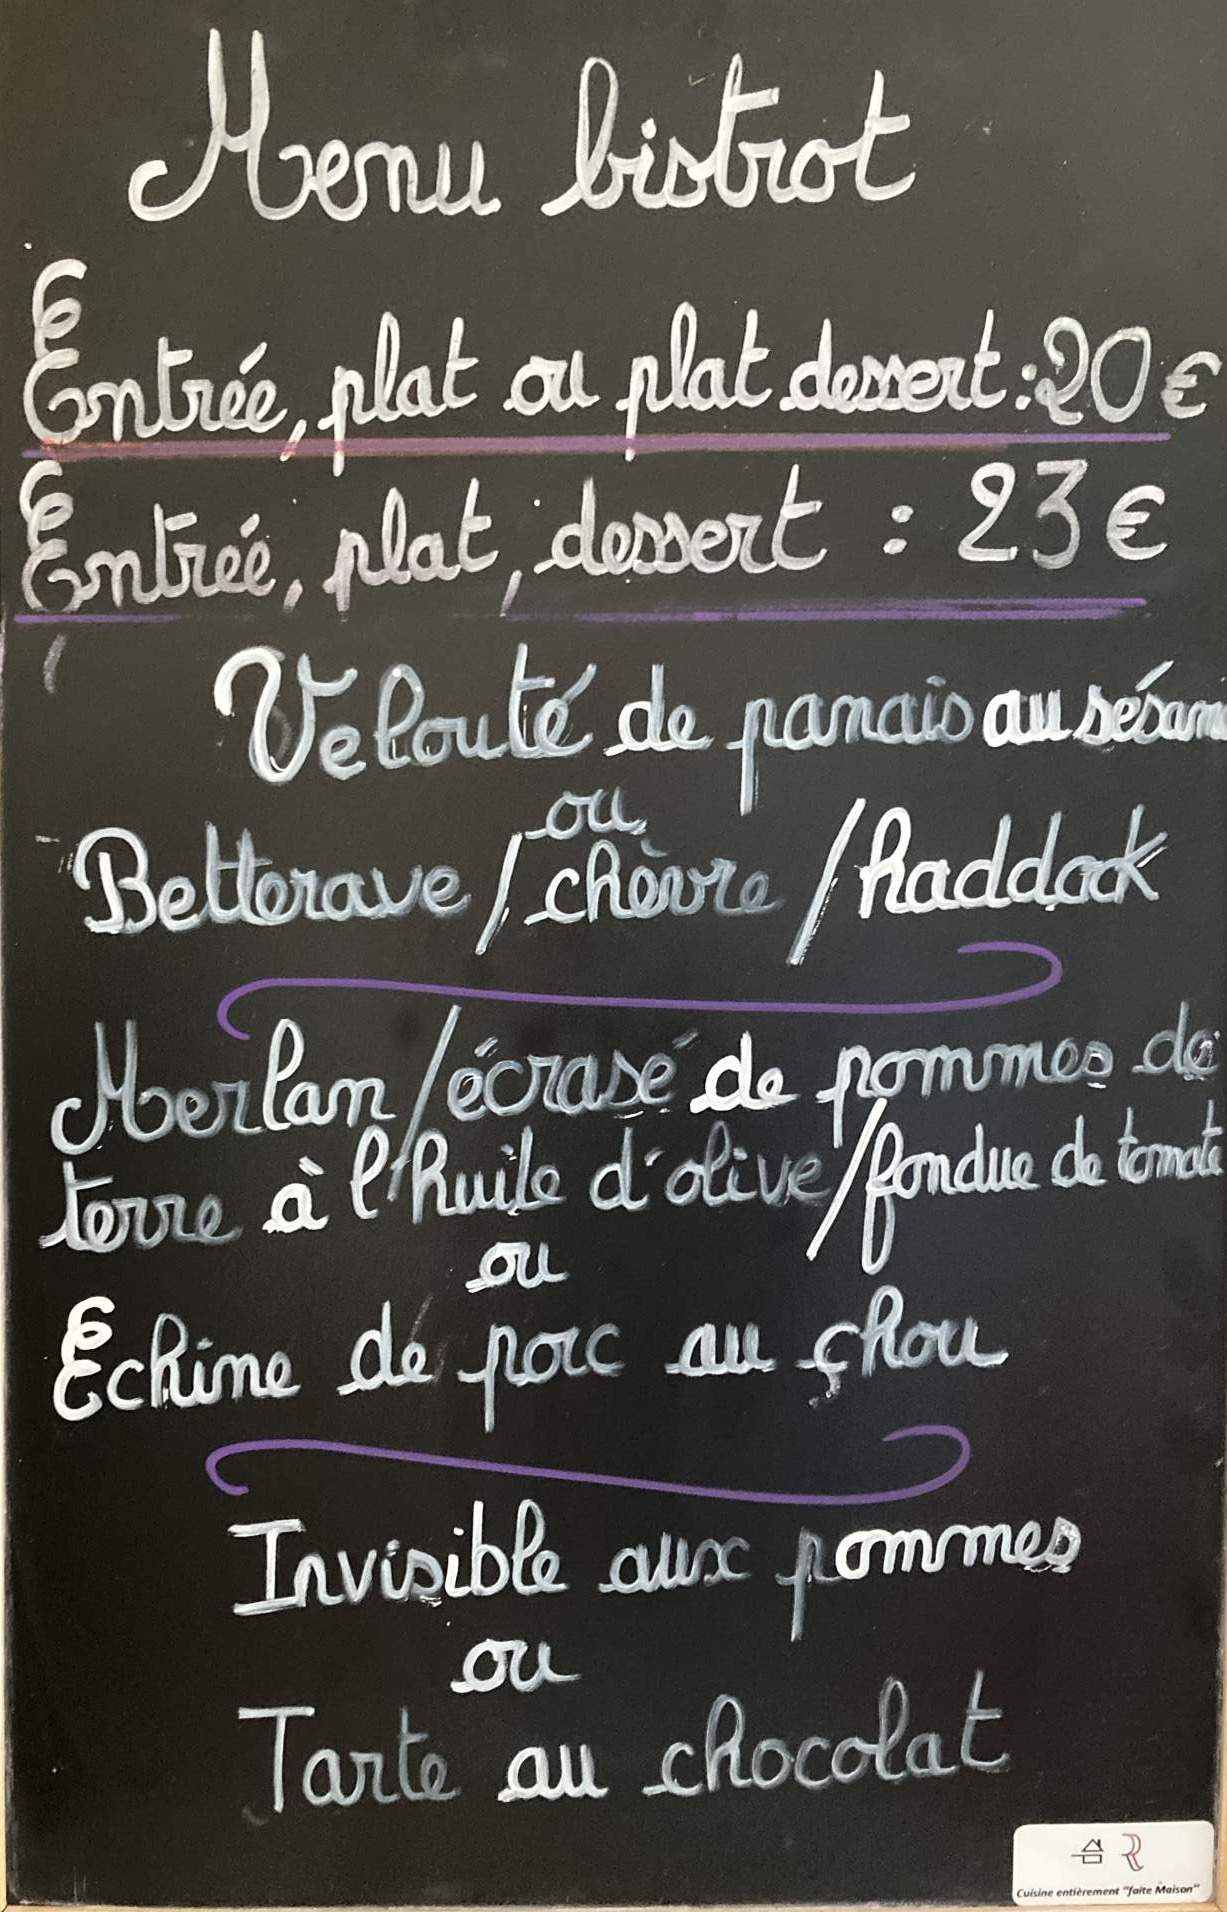 Menu bistrot
Entrée, plat ou plat dessert : 20 €
Entrée, plat, dessert : 23 €
Velouté de panais au sésame
ou
Betterave / chèvre / haddock
Merlan / écrasé de pommes de
terre à l'huile d'olive / fondue de tomate
ou
Echine de porc au chou
Invisible aux pommes
ou
Tarte au chocolat
Cuisine entièrement "faite Maison"